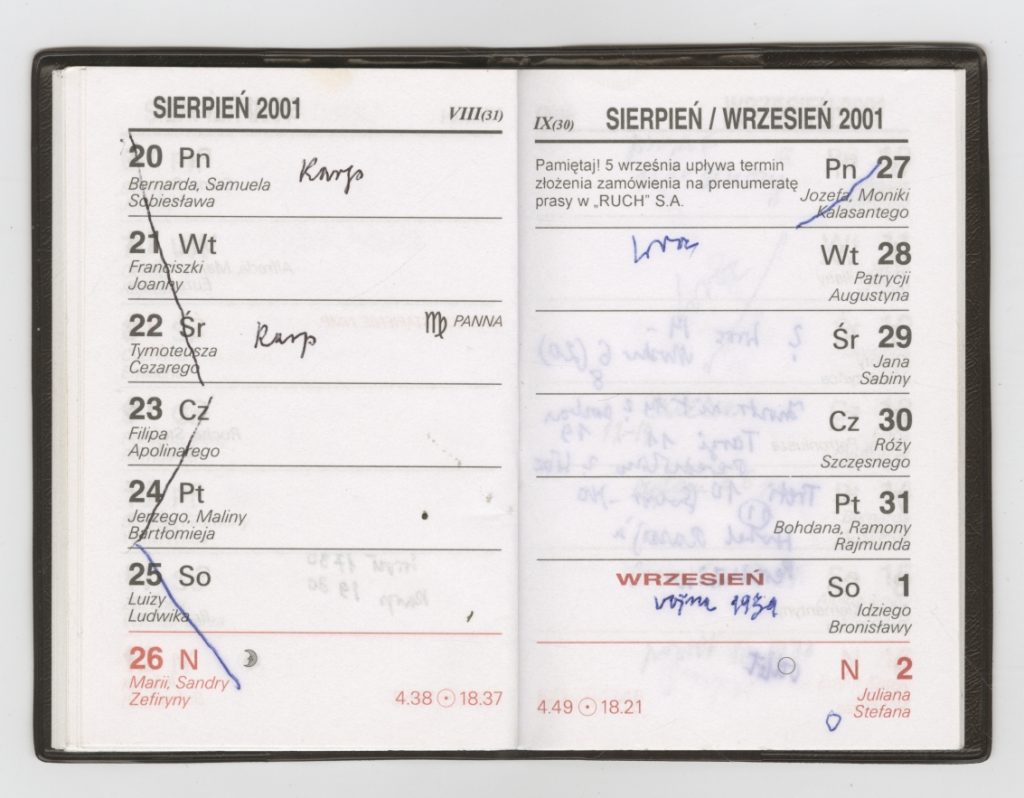 SIERPIEŃ 2001
VIII(31)
20 Pn
Bernarda, Samuela
Sobiesława
Karp
21 Wt
Franciszki
Joanny
22 Śr
Tymoteusza
Cezarego
Karp
♍ PANNA
23 Cz
Filipa
Apolinarego
24 Pt
Jerzego, Maliny
Bartłomieja
25 So
Luizy
Ludwika
26 N
Marii, Sandry
Zefiryny
4.38 ☉ 18.37
IX(30)
SIERPIEŃ / WRZESIEŃ 2001
Pamiętaj! 5 września upływa termin
złożenia zamówienia na prenumeratę
prasy w „RUCH” S.A.
Pn 27
Jozefa, Moniki
Kalasantego
Wt 28
Patrycji
Augustyna
Śr 29
Jana
Sabiny
Cz 30
Róży
Szczęsnego
Pt 31
Bohdana, Ramony
Rajmunda
WRZESIEŃ
wojna 1939
So 1
Idziego
Bronisławy
N 2
Juliana
Stefana
4.49 ☉ 18.21